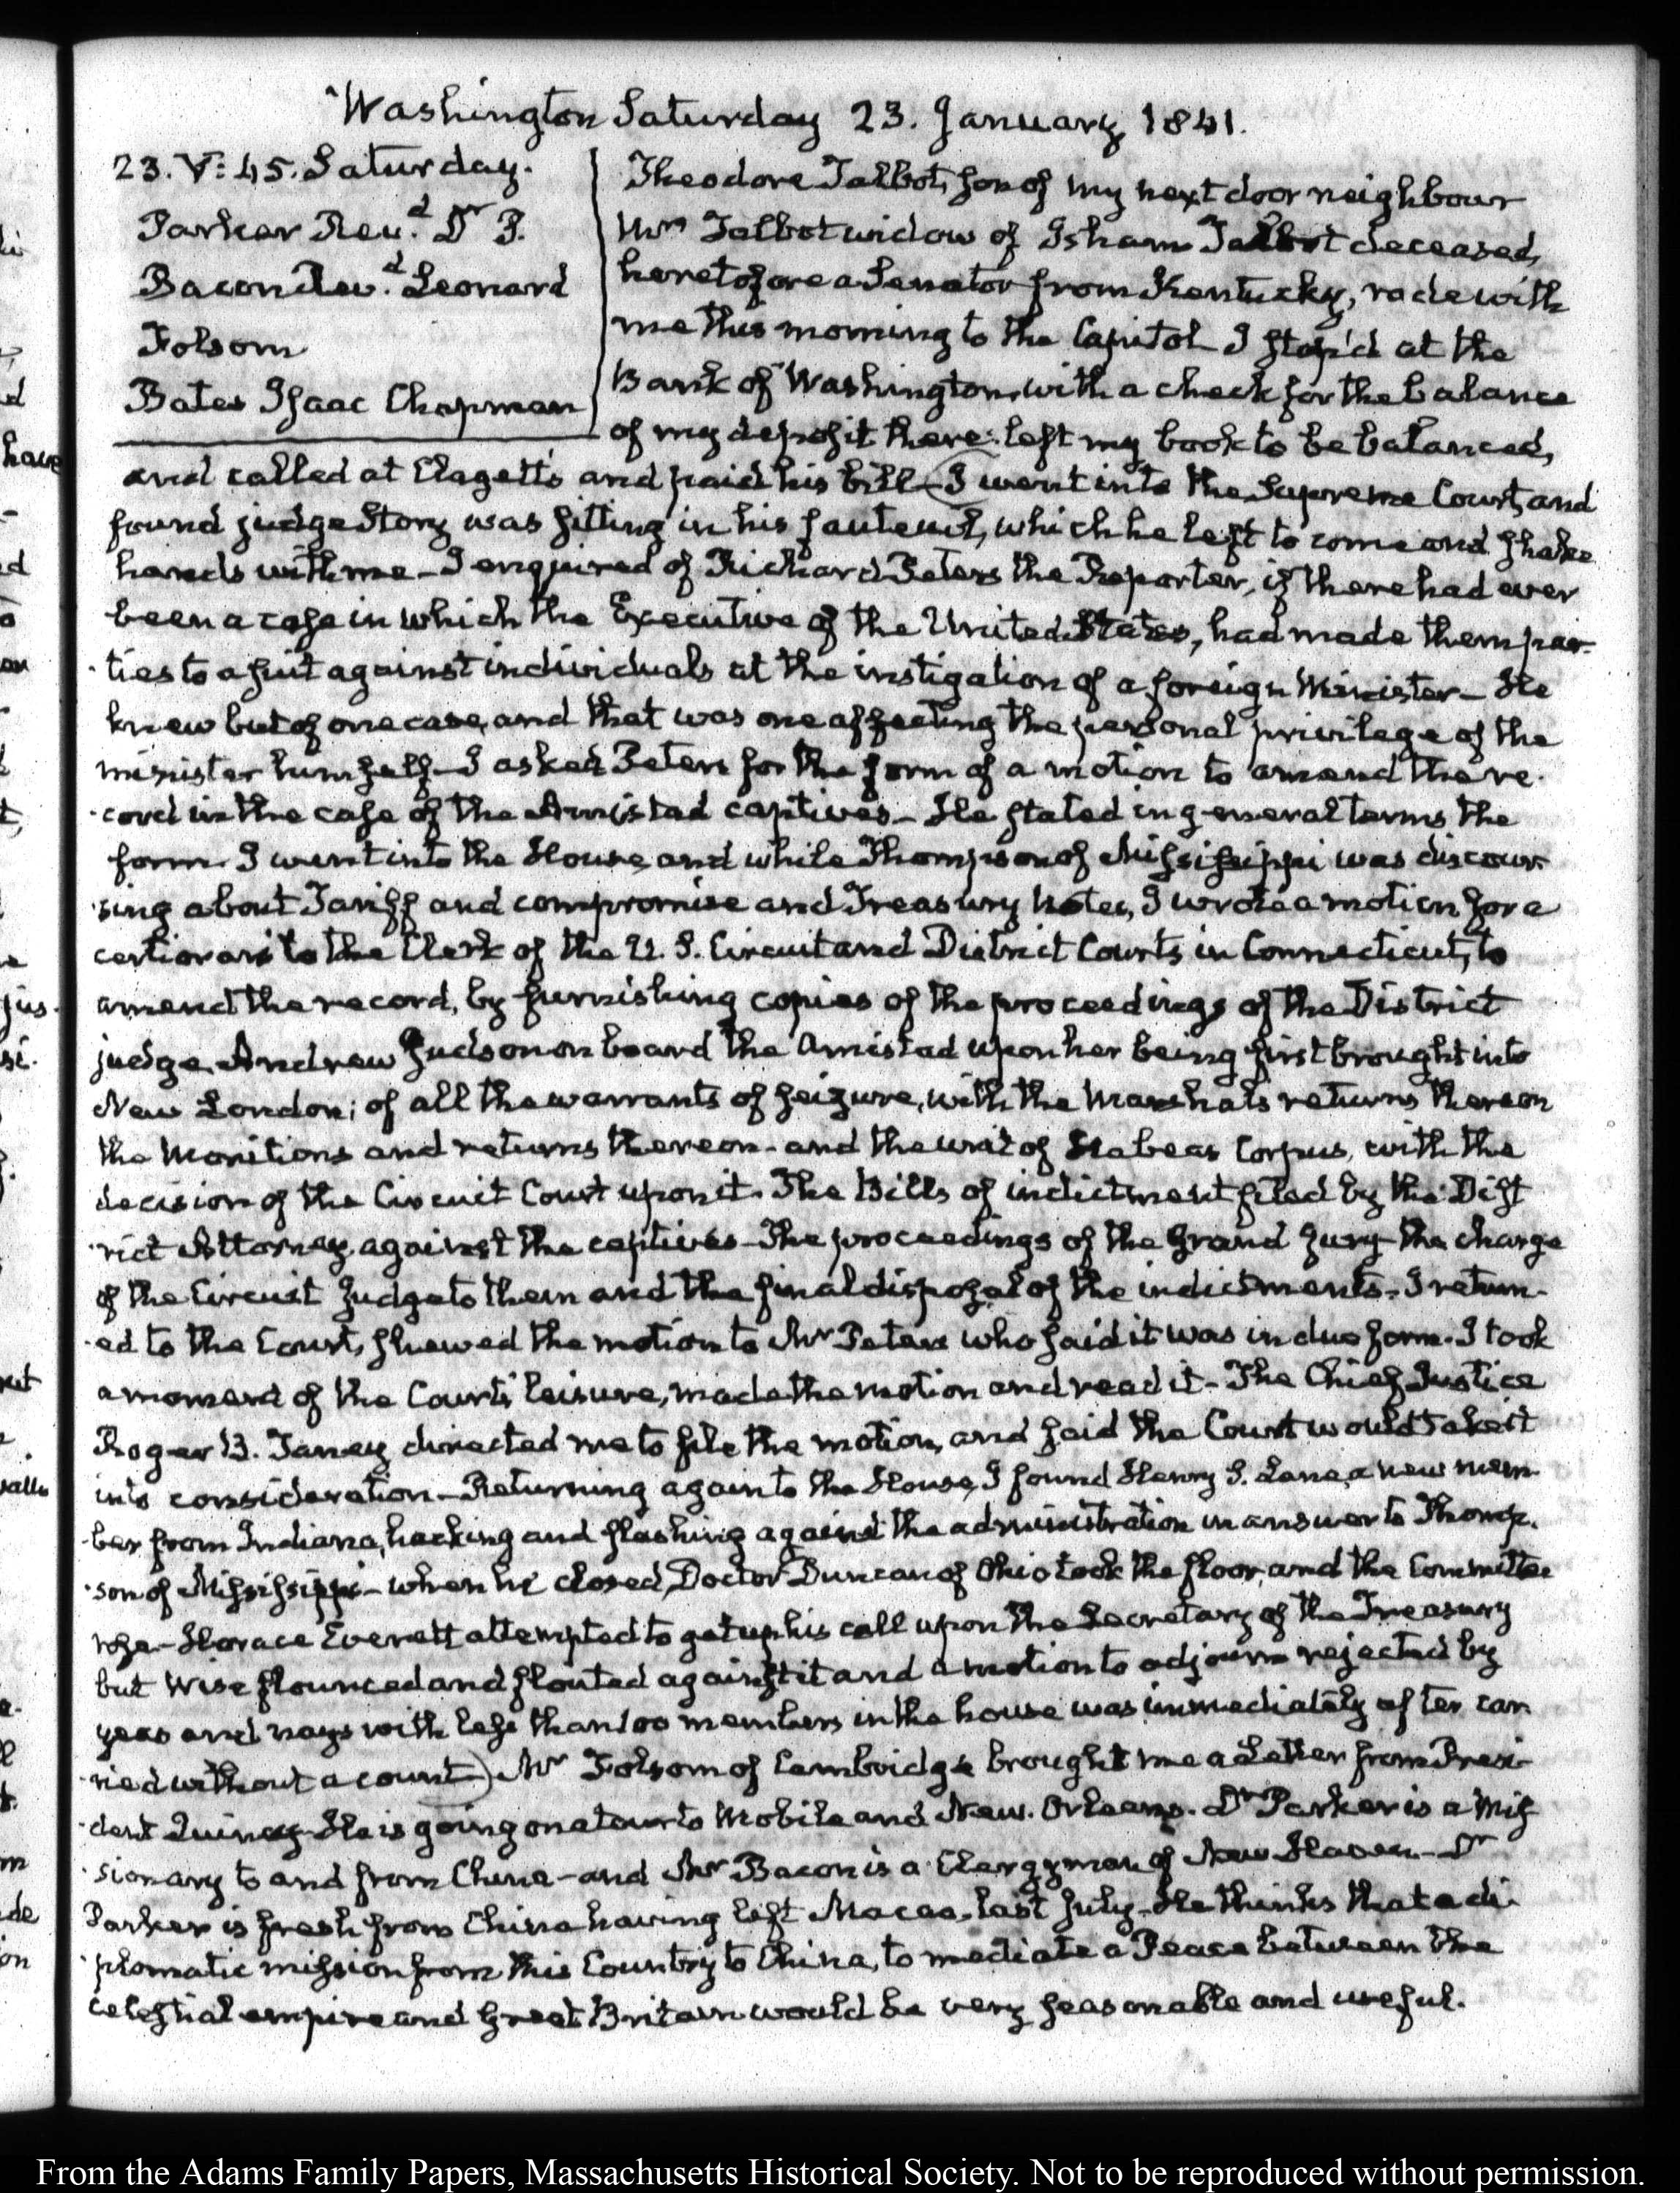 Washington Saturday 23. January 1841.
23. V: 45. Saturday.
Parker Rev.d Dr P.
Bacon Rev.d Leonard
Folsom
Bates Isaac Chapman
Theodore Talbot, son of my next door neighbour
Mrs Talbot widow of Isham Talbot deceased,
heretofore a Senator from Kentucky, rode with
me this morning to the Capitol I stop'd at the
Bank of Washington, with a check for the balance
of my deposit there: left my book to be balanced,
and called at Clagett's and paid his bill — (I went into the Supreme Court, and
found judge Story was sitting in his fauteuil, which he left to come and shake
hands with me — I enquired of Richard Peters the Reporter, if there had ever
been a case in which the Executive of the United States, had made them par-
ties to a suit against individuals at the instigation of a foreign Minister — He
knew but of one case, and that was one affecting the personal privilege of the
minister himself — I asked Peters for the form of a motion to amend the re-
cord in the case of the Amistad captives — He stated in general terms the
form. I went into the House, and while Thompson of Mississippi was discour-
sing about Tariff and compromise and Treasury Notes, I wrote a motion for a
certiorari to the Clerk of the U. S. Circuit and District Courts in Connecticut, to
amend the record, by furnishing copies of the proceedings of the District
judge Andrew Judson on board the Amistad upon her being first brought into
New London; of all the warrants of seizure, with the Marshal's returns thereon
the Monitions and returns thereon — and the writ of Habeas Corpus, with the
decision of the Circuit Court upon it. The Bills of indictment filed by the Dist-
rict Attorney against the captives — The proceedings of the Grand Jury — the charge
of the Circuit Judge to them and the final disposal of the indictments. I return-
ed to the Court, shewed the motion to Mr Peters who said it was in due form. I took
a moment of the Court's leisure, made the motion and read it — The Chief Justice
Roger B. Taney directed me to file the motion, and said the Court would take it
into consideration — Returning again to the House, I found Henry S. Lane, a new mem-
ber from Indiana, hacking and slashing against the administration in answer to Thomp-
son of Mississippi — when he closed, Doctor Duncan of Ohio took the floor, and the Committee
rose — Horace Everett attempted to get up his call upon the Secretary of the Treasury
but Wise flounced and flouted against it and a motion to adjourn rejected by
yeas and nays with less than 100 members in the house was immediately after car-
ried without a count) Mr Folsom of Cambridge brought me a Letter from Presi-
dent Quincy — He is going on a tour to Mobile and New Orleans. Dr Parker is a Mis-
sionary to and from China — and Mr Bacon is a Clergyman of New Haven — Dr
Parker is fresh from China having left Macao last July — He thinks that a di-
plomatic mission from this Country to China, to mediate a Peace between the
celestial empire and Great Britain would be very seasonable and useful.
From the Adams Family Papers, Massachusetts Historical Society. Not to be reproduced without permission.